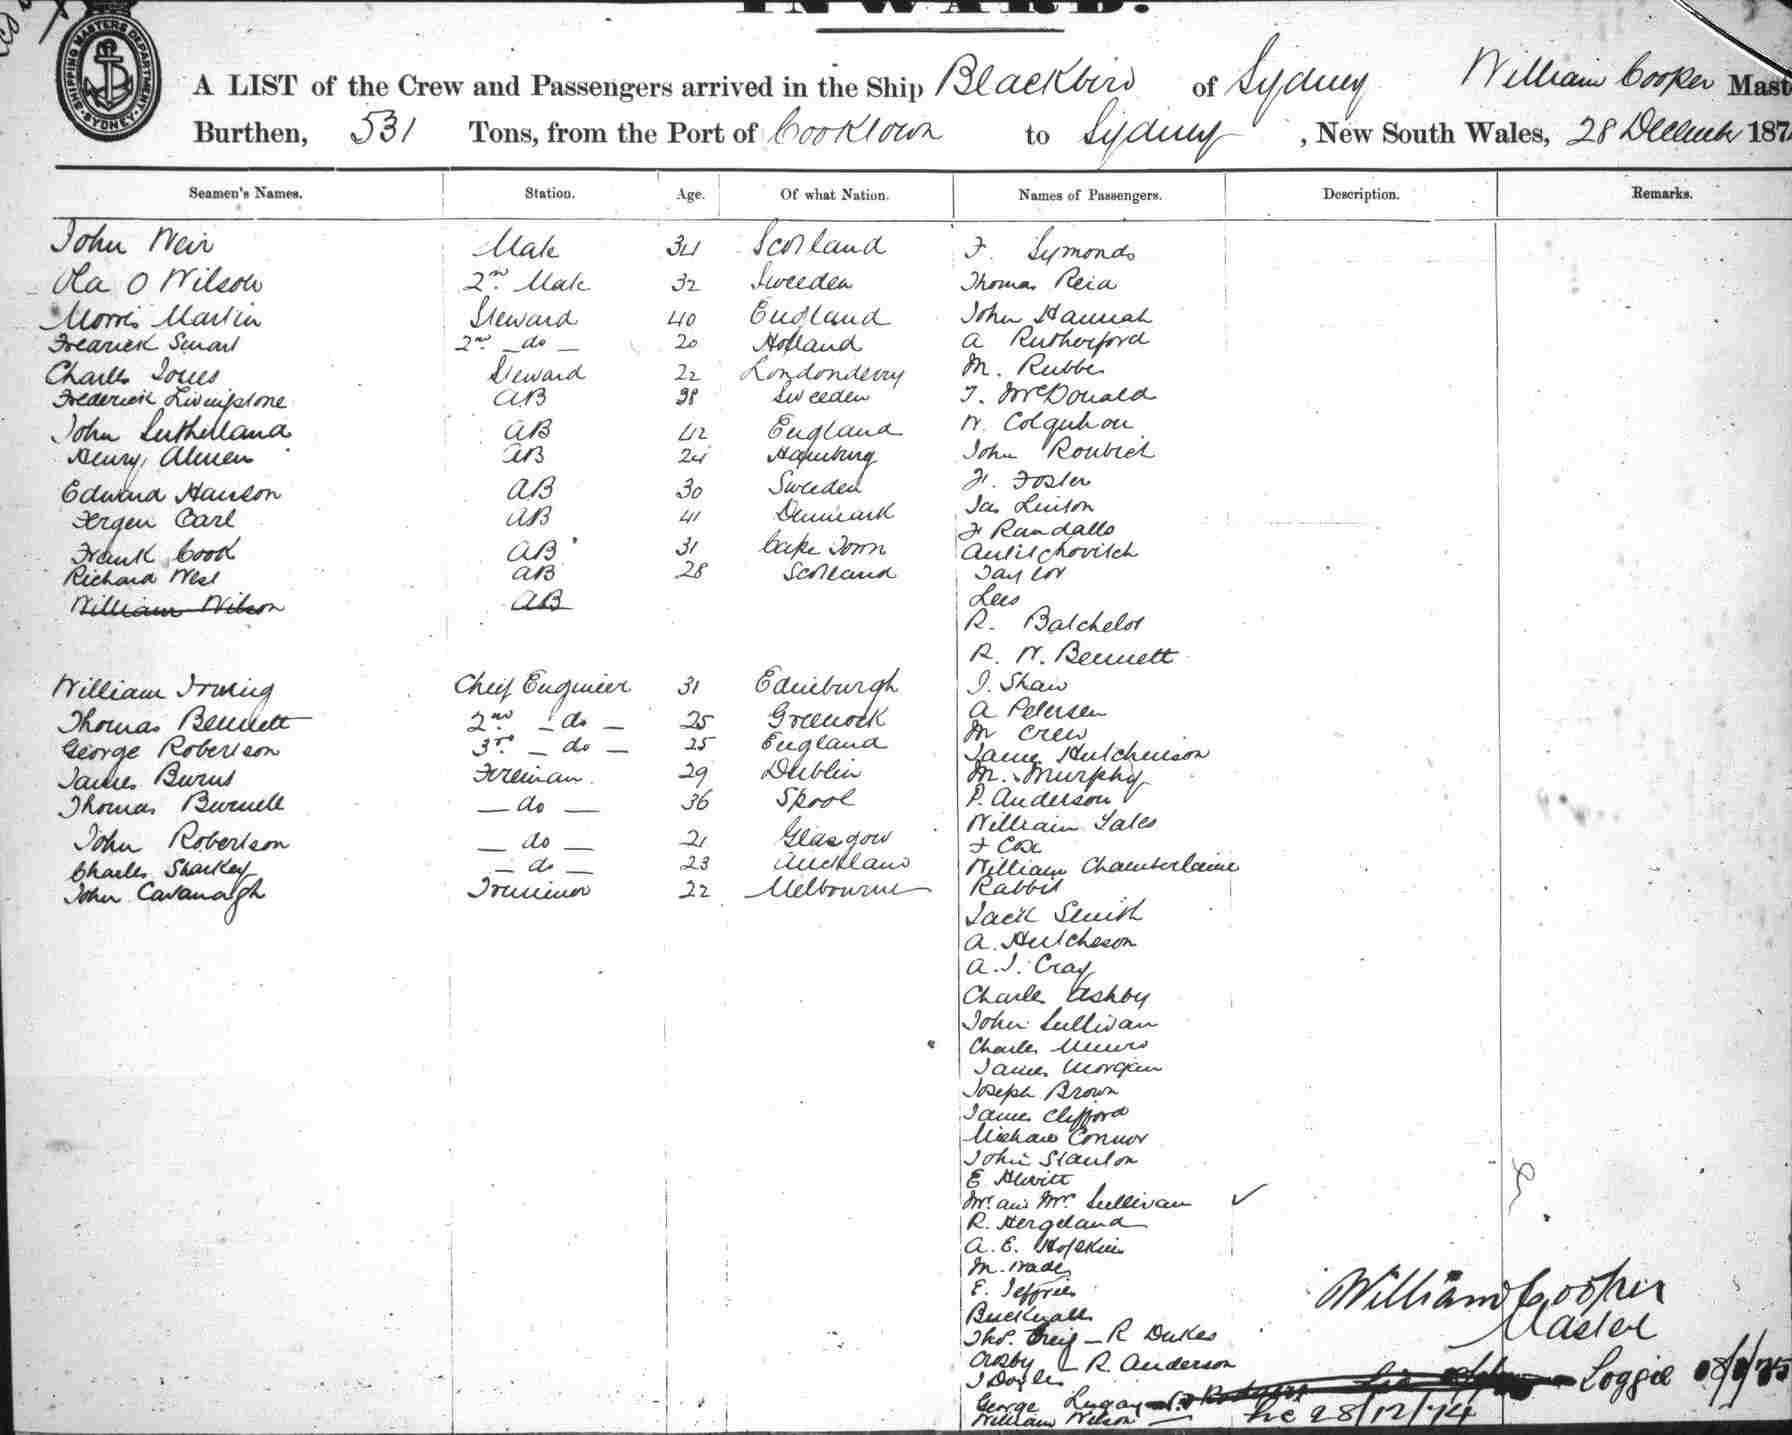 INWARD.
SHIPPING MASTERS DEPARTMENT SYDNEY
A LIST of the Crew and Passengers arrived in the Ship Blackbird of Sydney William Cooper Mast
Burthen, 531 Tons, from the Port of Cooktown to Sydney, New South Wales, 28 December 187
Seamen's Names. Station. Age. Of what Nation. Names of Passengers. Description. Remarks.
John Weir Mate 34 Scotland F. Symonds
Ola O Wilson 2nd Mate 32 Sweeden Thomas Reid
Morris Martin Steward 40 England John Hannah
Frearick Smart 2nd - do - 20 Holland A Rutherford
Charles Jones Steward 22 Londonderry M. Rubbe
Frederick Livingstone AB 38 Sweeden T. McDonald
John Sutherland AB 42 England W. Colquhou
Henry AB 24 Hamburg John
Edward Hanson AB 30 Sweeden H. Foster
Jergen Carl AB 41 Denmark Jas Linton
Frank Cook AB 31 Cape Town F Randalls
Richard West AB 28 Scotland Antitchovitch
Taylor
William Wilson AB Lees
R. Batchelor
R. W. Bennett
William Irving Cheif Engineer 31 Edinburgh J. Shaw
Thomas Bennett 2nd - do - 25 Greenock A Petersen
George Robertson 3rd - do - 25 England M Crew
James Hutchinson
James Burns Fireman 29 Dublin M. Murphy
Thomas Burnell - do - 36 Spool P. Anderson
William Yales
John Robertson - do - 21 Glasgow F Cox
Charles Sharkey - do - 23 Auckland William Chamberlaine
John Cavanagh Trimmer 22 Melbourne Rabbit
Jack Smith
A. Hutcheson
A. J. Cray
Charles Ashby
John Sullivan
Charles Munro
James Morgan
Joseph Brown
James Clifford
Michael Connor
John Stanton
E Hewitt
Mr. and Mrs. Sullivan
R. Hergeland
A. E. Hopkins
M. Wade
E. Jeffries
William Cooper
Bucknalls
Master
Thos. Greig - R Dukes
Crosby - R. Anderson
J Doyle Loggie
George
William Wilson 28/12/74